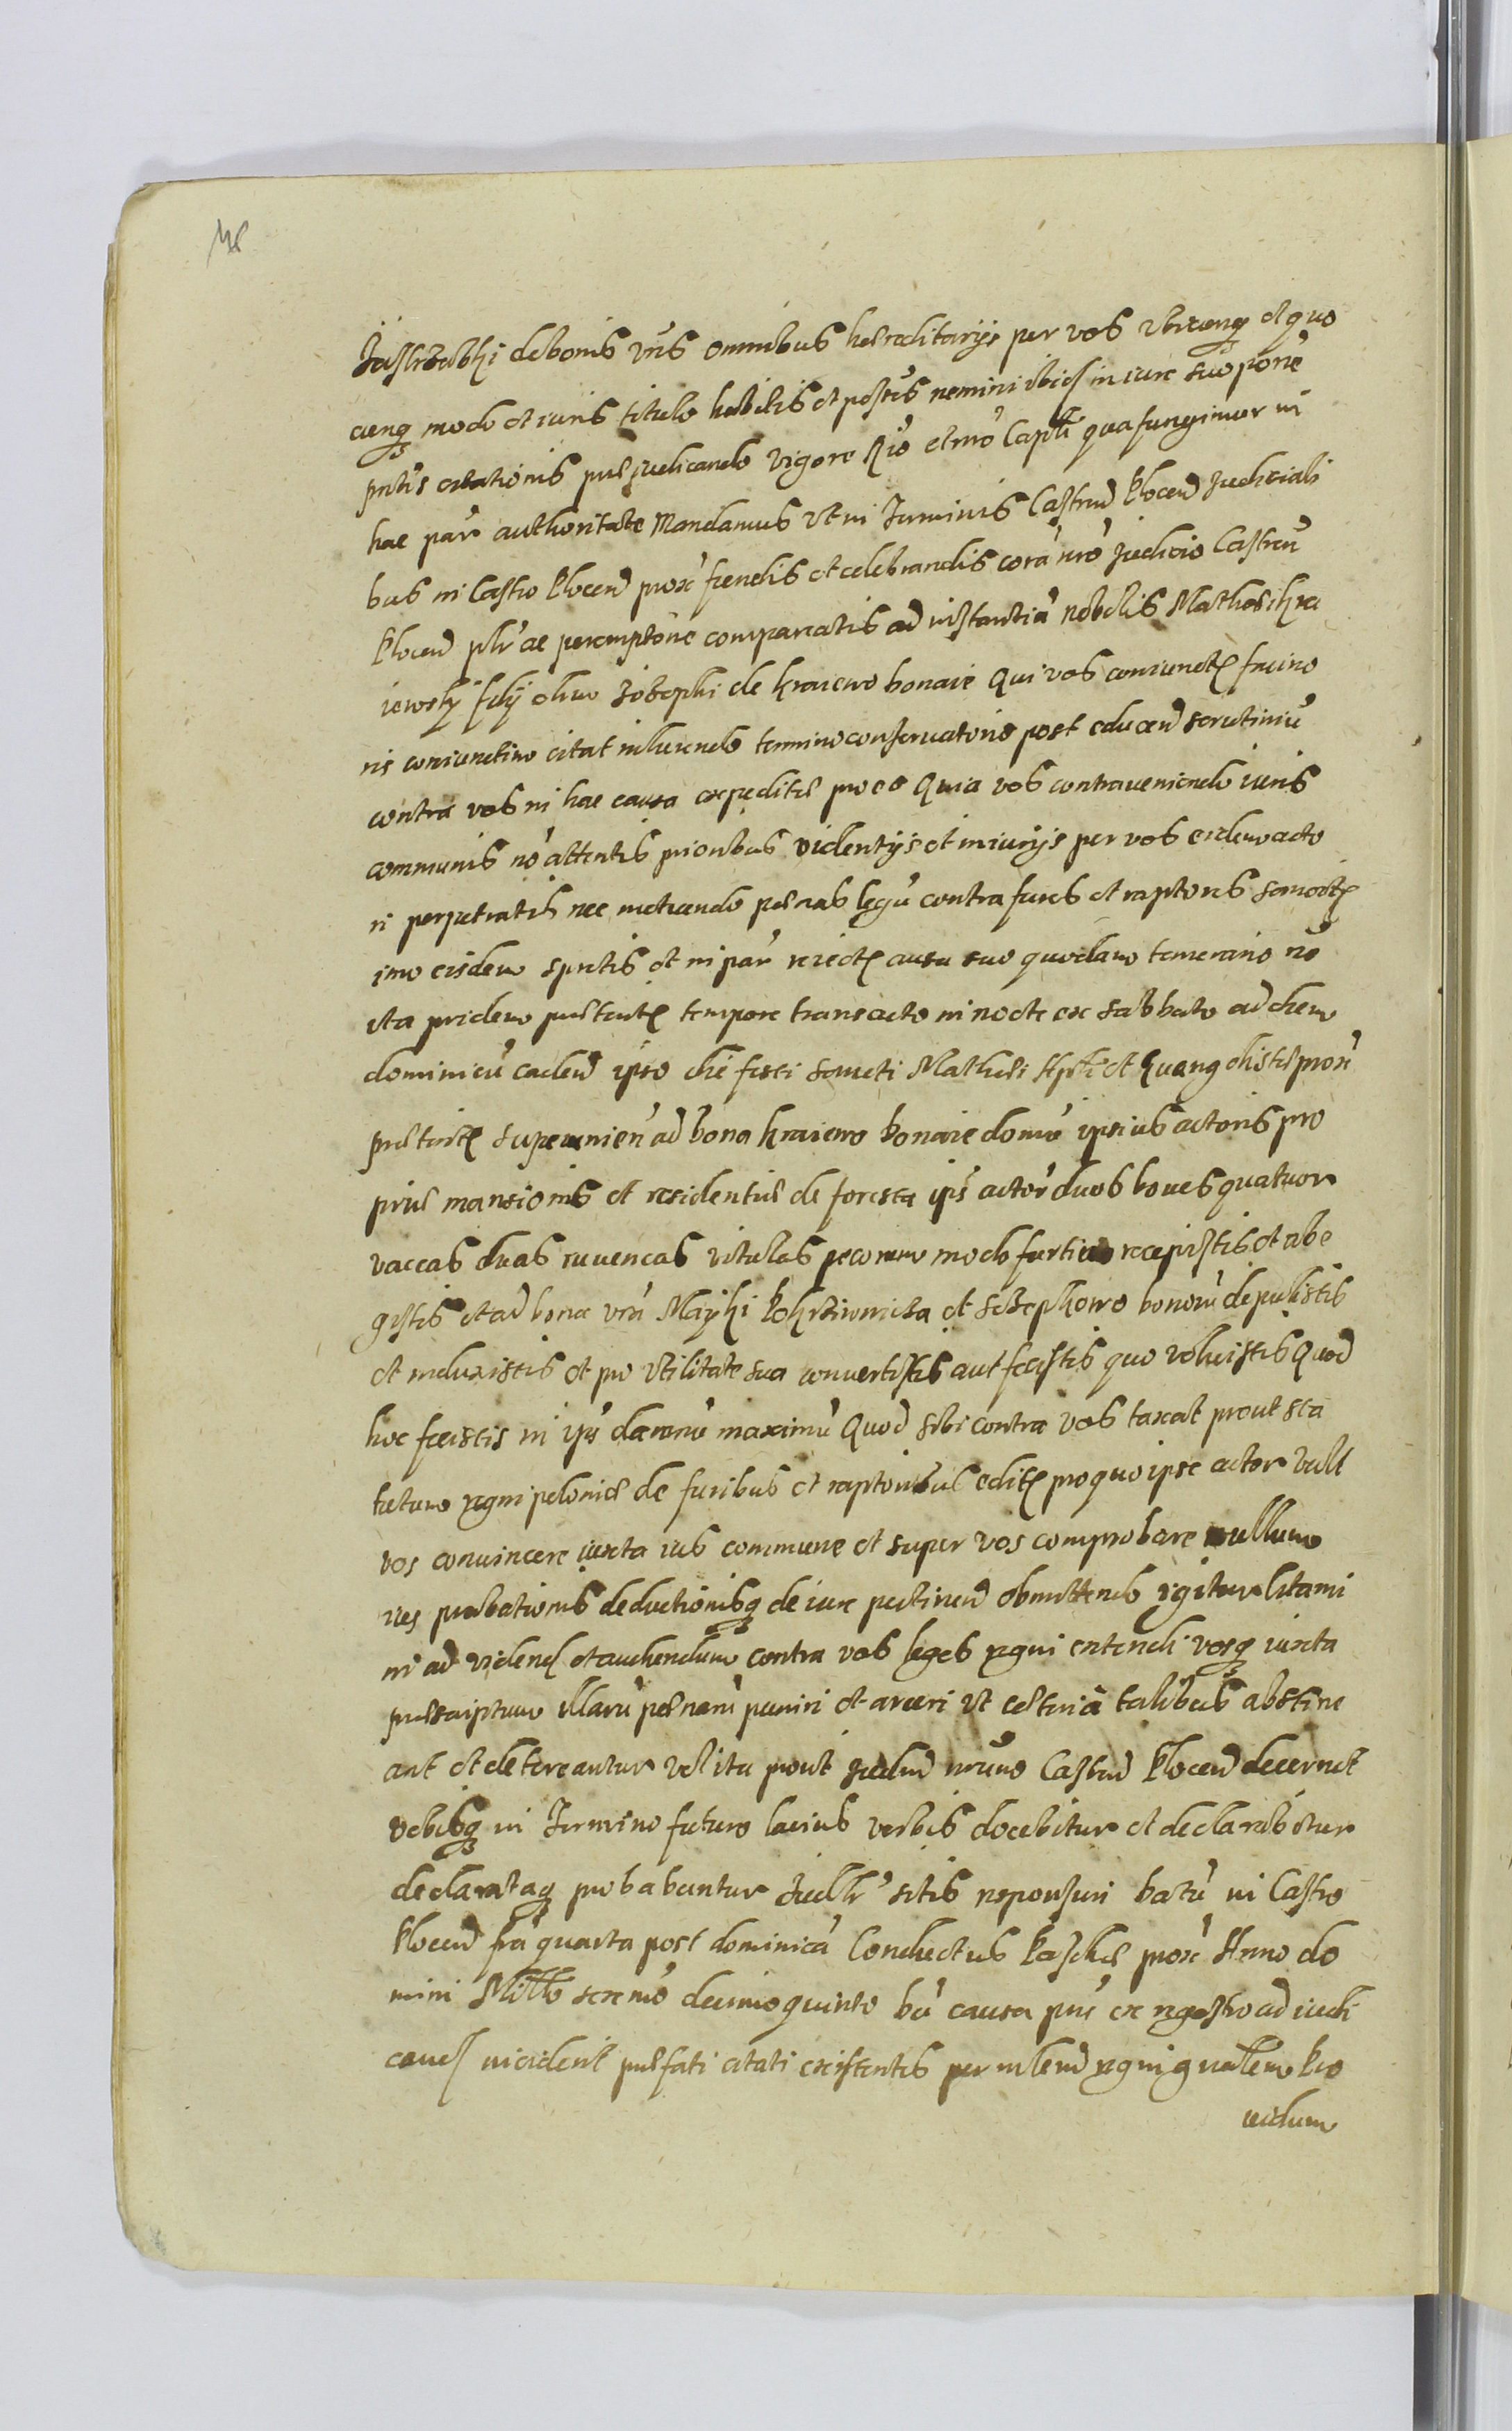 Jastrzabki de bonis vris omnibus haereditarijs per vos vbicunq et quo
cunq modo et iuris titulo habitis et possis nemini ibid in iure suo pone
pntis citationis praeiudicando vigore Rio et nro Capli qua fungimur in
hac par authoritate Mandamus Vt in Terminis Castren Plocen Judiciali
bus in Castro Plocen prox fiendis et celebrandis cora nro Judicio Castren
Plocen plr ac peremptorie compareatis ad instantia nobilis Mathaei Kra
iewsky filij olim Josephi de Kraiewo bonaie Qui vos coniunctos facino
ris coniunctim citat inhaerendo termino conservatorio post educen scrutiniu
contra vos in hac causa expeditae pro eo Quia vos contraveniendo iuris
communis no attentis prioribus violentijs et iniurijs per vos eidem acto
ri perpetratis nec metuendo paenas legu contra fures et raptores sancitas
imo eisdem spretis et in par reiectis ausu suo quodam temerario no
ita pridem praeterito tempore transacto in nocte ex Sabbato ad diem
dominicu caden ipso die festi Sancti Mathaei Apli et Evang distae prox
praeterito supervenien ad bona Kraiewo bonaie domu ipsius actoris pro
priae mansionis et residentiae de foresta ips actor duos boves quatuor
vaccas duas iuvencas vitulas pecorum modo furtivo recepistis et abe
gistis et ad bona vra Mayki Pokrziwnicza et Jozephowo bonoru depulistis
et induxistis et pro vtilitate sua convertistis aut fecistis quo voluistis Quod
hoc fecistis in ips damnu maximu Quod sibi contra vos taxat prout sta
tutum regni poloniae de furibus et raptoribus editum pro quo ipse actor vult
vos convincere iuxta ius commune et super vos comprobare nullum
res probationis deductionisq de iure pertinen obmittendo igitur Citami
ni ad viden et audiendum contra vos leges regni extendi vosq iuxta
praescriptum illaru paenaru puniri et arceri Vt caeteri a talibus abstine
ant et deterreantur vel ita prout Judm nrum Castren Plocen decernet
vobisq in Termino futuro lacius verbis docebitur et declarabitur
declarataq probabuntur Judlr sitis responsuri Datu in Castro
Plocen fra quarta post dominica Conductus Paschae prox Anno do
mini Millo sexcmo decimo quinto ha causa pns ex regestro ad iudi
cand inciderit praefati citati existentes per mlem regni gnalem Pro
uidum